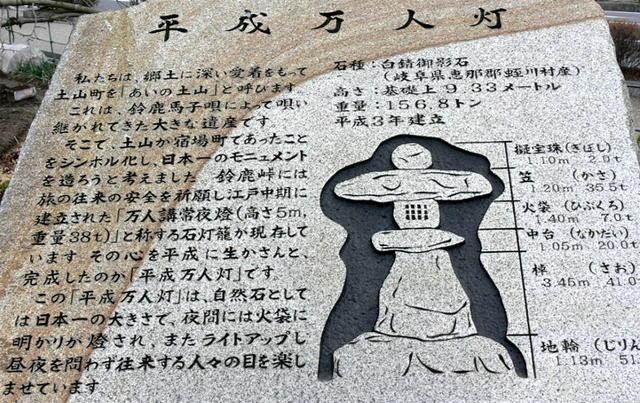 平成万人灯
私たちは、郷土に深い愛着をもって
土山町を「あいの土山」と呼びます。
これは、鈴鹿馬子唄によって唄い
継がれてきた大きな遺産です。
そこで、土山が宿場町であったこと
をシンボル化し、日本一のモニュメント
を造ろうと考えました。鈴鹿峠には
旅の往来の安全を祈願し江戸中期に
建立された「万人講常夜燈（高さ5m，
重量38t）」と称する石灯籠が現存して
います。その心を平成に生かさんと、
完成したのが「平成万人灯」です。
この「平成万人灯」は、自然石として
は日本一の大きさで、夜間には火袋に
明かりが燈され、またライトアップし
昼夜を問わず往来する人々の目を楽し
ませています
石種：白錆御影石
（岐阜県恵那郡蛭川村産）
高さ：基礎上 9.33メートル
重量：156.8トン
平成3年建立
擬宝珠（ぎぼし）
1.10m 2.9t
笠（かさ）
1.20m 35.5t
火袋（ひぶくろ）
1.40m 7.0t
中台（なかだい）
1.05m 20.0t
棹（さお）
3.45m 41.0
地輪（じりん
1.13m 51.